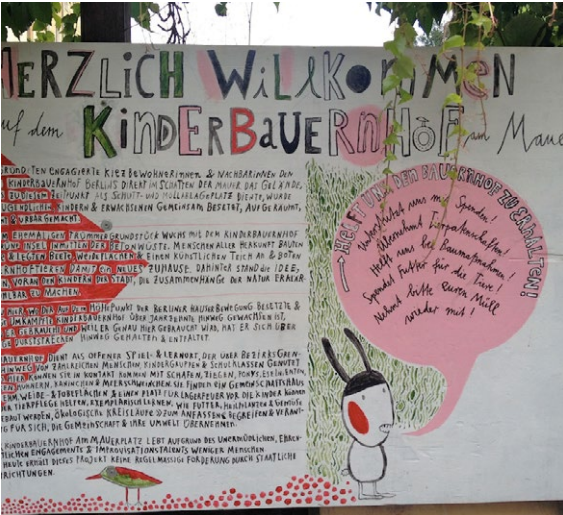 HERZLICH WILLKOMMEN
auf dem KINDERBAUERNHOF am Mauer
GRÜNDETEN ENGAGIERTE KIEZBEWOHNERINNEN & NACHBARINNEN DEN
KINDERBAUERNHOF BERLINS DIREKT IM SCHATTEN DER MAUER. DAS GELÄNDE,
ZU DIESEM ZEITPUNKT ALS SCHUTT- UND MÜLLABLAGEPLATZ DIENTE, WURDE
JUGENDLICHEN, KINDERN & ERWACHSENEN GEMEINSAM BESETZT, AUFGERÄUMT,
& URBAR GEMACHT.
EHEMALIGEN TRÜMMERGRUNDSTÜCK WUCHS MIT DEM KINDERBAUERNHOF
INSEL INMITTEN DER BETONWÜSTE. MENSCHEN ALLER HERKUNFT BAUTEN
LEGTEN BEETE, WEIDEFLÄCHEN & EINEN KÜNSTLICHEN TEICH AN & BOTEN
DAMIT EIN NEUES ZUHAUSE. DAHINTER STAND DIE IDEE,
VORAN DEN KINDERN DER STADT, DIE ZUSAMMENHÄNGE DER NATUR
ZU MACHEN.
HÖHEPUNKT DER BERLINER HÄUSERBEWEGUNG BESETZTE &
UMKÄMPFTE KINDERBAUERNHOF ÜBER JAHRZEHNTE HINWEG GEWACHSEN IST,
GEBRAUCHT UND WEIL ER GENAU HIER GEBRAUCHT WIRD, HAT ER SICH ÜBER
HINWEG GEHALTEN & ENTFALTET.
DIENT ALS OFFENER SPIEL- & LERNORT, DER ÜBER BEZIRKSGREN-
HINWEG VON ZAHLREICHEN MENSCHEN, KINDERGRUPPEN & SCHULKLASSEN GENUTZT
HIER KÖNNEN SIE IN KONTAKT KOMMEN MIT SCHAFEN, ZIEGEN, PONYS, ESELN, ENTEN,
HÜHNERN, KANINCHEN & MEERSCHWEINCHEN. SIE FINDEN EIN GEMEINSCHAFTSHAUS
WEIDE- & TOBEFLÄCHEN & EINEN PLATZ FÜR LAGERFEUER VOR. DIE KINDER KÖNNEN
TIERPFLEGE HELFEN, EXEMPLARISCH LERNEN, WIE FUTTER, HEILPFLANZEN & GEMÜSE
WERDEN, ÖKOLOGISCHE KREISLÄUFE ZUM ANFASSEN & BEGREIFEN & VERANT-
FÜR SICH, DIE GEMEINSCHAFT & IHRE UMWELT ÜBERNEHMEN.
KINDERBAUERNHOF AM MAUERPLATZ LEBT AUFGRUND DES UNERMÜDLICHEN, EHREN-
ENGAGEMENTS & IMPROVISATIONSTALENTS WENIGER MENSCHEN
HEUTE ERHÄLT DIESES PROJEKT KEINE REGELMÄSSIGE FÖRDERUNG DURCH STAATLICHE
RICHTUNGEN.
HELFT UNS DEN BAUERNHOF ZU ERHALTEN!
Unterstützt uns mit Spenden!
Übernehmt Tierpatenschaften!
Helft uns bei Baumaßnahmen!
Spendet Futter für die Tiere!
Nehmt bitte euren Müll
wieder mit!